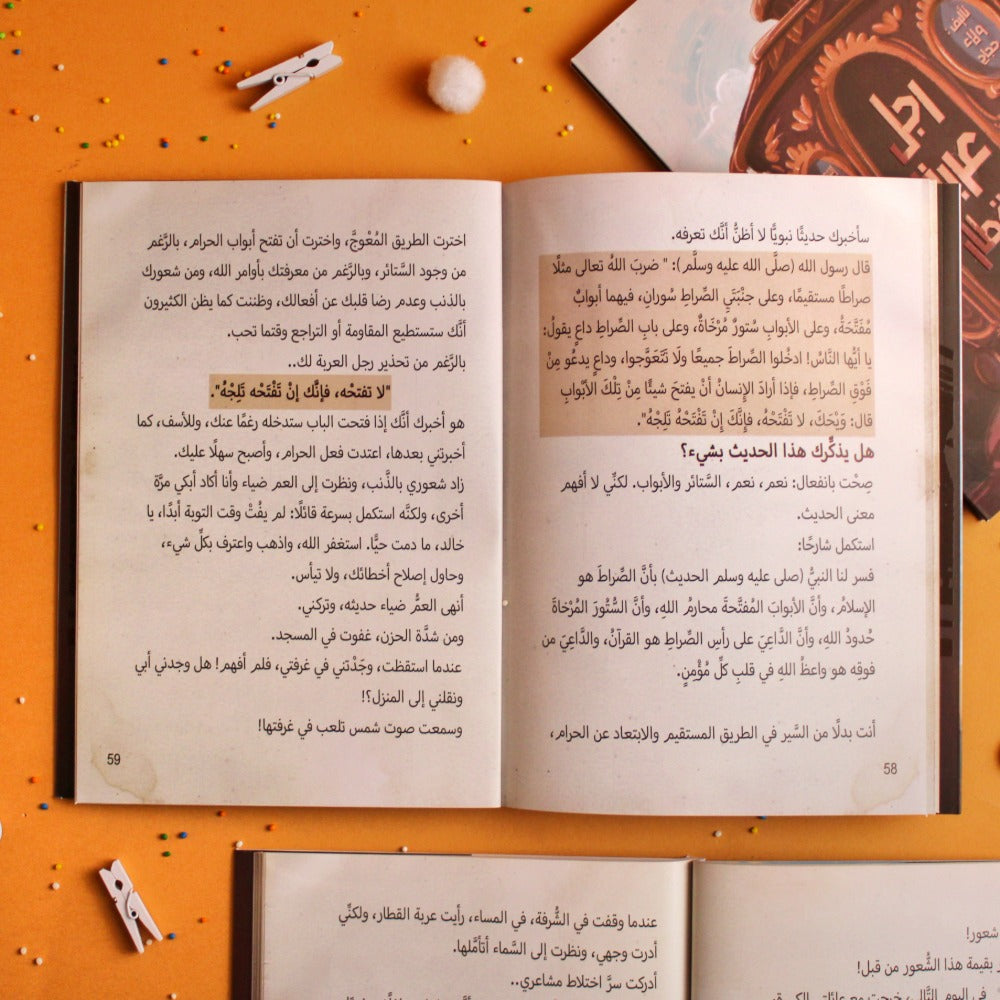 سأخبرك حديثًا نبويًّا لا أظنُّ أنَّك تعرفه.
قال رسول الله (صلَّى الله عليه وسلَّم): " ضربَ اللهُ تعالى مثلًا
صراطًا مستقيمًا، وعلى جنْبَتَيِ الصِّراطِ سُورانِ، فيهما أبوابٌ
مُفَتَّحَةٌ، وعلى الأبوابِ سُتورٌ مُرْخَاةٌ، وعلى بابِ الصِّراطِ داعٍ يقولُ:
يا أيُّها النَّاسُ! ادخُلوا الصِّراطَ جميعًا ولَا تَتَعَوَّجوا، وداعٍ يدعُو مِنْ
فَوْقِ الصِّراطِ، فإذا أرادَ الإِنسانُ أنْ يفتحَ شيئًا مِنْ تِلْكَ الأَبْوابِ
قال: وَيْحَكَ، لا تَفْتَحْهُ، فإِنَّكَ إِنْ تَفْتَحْهُ تَلِجْهُ".
هل يذكِّرك هذا الحديث بشيء؟
صِحْت بانفعال: نعم، نعم، السَّتائر والأبواب. لكنِّي لا أفهم
معنى الحديث.
استكمل شارحًا:
فسر لنا النبيُّ (صلى عليه وسلم الحديث) بأنَّ الصِّراطَ هو
الإسلامُ، وأنَّ الأبوابَ المُفتَّحةَ محارمُ اللهِ، وأنَّ السُّتُورَ المُرْخاةَ
حُدودُ اللهِ، وأنَّ الدَّاعيَ على رأسِ الصِّراطِ هو القرآنُ، والدَّاعِيَ من
فوقِه هو واعظُ اللهِ في قلبِ كلِّ مُؤْمنٍ.
أنت بدلًا من السَّير في الطريق المستقيم والابتعاد عن الحرام،
58
اخترت الطريق المُعْوجَّ، واخترت أن تفتح أبواب الحرام، بالرَّغم
من وجود السَّتائر، وبالرَّغم من معرفتك بأوامر الله، ومن شعورك
بالذنب وعدم رضا قلبك عن أفعالك، وظننت كما يظن الكثيرون
أنَّك ستستطيع المقاومة أو التراجع وقتما تحب.
بالرَّغم من تحذير رجل العربة لك..
"لا تفتحْه، فإنَّك إنْ تَفْتَحْه تَلِجْهُ".
هو أخبرك أنَّك إذا فتحت الباب ستدخله رغمًا عنك، وللأسف، كما
أخبرتني بعدها، اعتدت فعل الحرام، وأصبح سهلًا عليك.
زاد شعوري بالذَّنب، ونظرت إلى العم ضياء وأنا أكاد أبكي مرَّة
أخرى، ولكنَّه استكمل بسرعة قائلًا: لم يفُتْ وقت التوبة أبدًا، يا
خالد، ما دمت حيًّا. استغفر الله، واذهب واعترف بكلِّ شيء،
وحاول إصلاح أخطائك، ولا تيأس.
أنهى العمُّ ضياء حديثه، وتركني.
ومن شدَّة الحزن، غفوت في المسجد.
عندما استقظت، وجَدْتني في غرفتي، فلم أفهم! هل وجدني أبي
ونقلني إلى المنزل؟!
وسمعت صوت شمس تلعب في غرفتها!
59
شعور!
بقيمة هذا الشُّعور من قبل!
عندما وقفت في الشُّرفة، في المساء، رأيت عربة القطار، ولكنِّي
أدرت وجهي، ونظرت إلى السَّماء أتأمَّلها.
أدركت سرَّ اختلاط مشاعري..